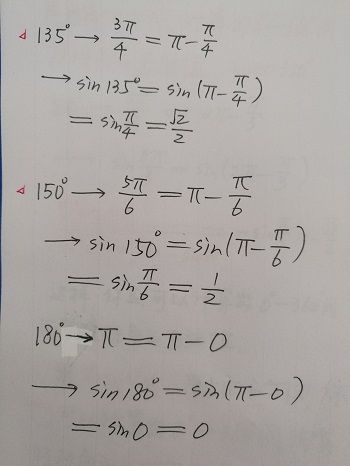 135° → 3π/4 = π - π/4
→ sin 135° = sin(π - π/4)
= sin π/4 = √2/2
150° → 5π/6 = π - π/6
→ sin 150° = sin(π - π/6)
= sin π/6 = 1/2
180° → π = π - 0
→ sin 180° = sin(π - 0)
= sin 0 = 0